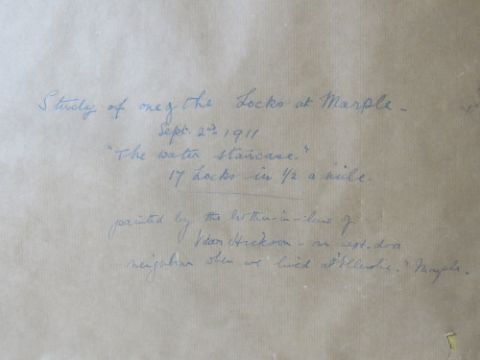 Study of one of the Locks at Marple –
Sept. 2nd 1911
"The water staircase."
17 Locks in 1/2 a mile.
painted by the brother-in-law of
Hickson – our next-door
neighbour when we lived at Marple.